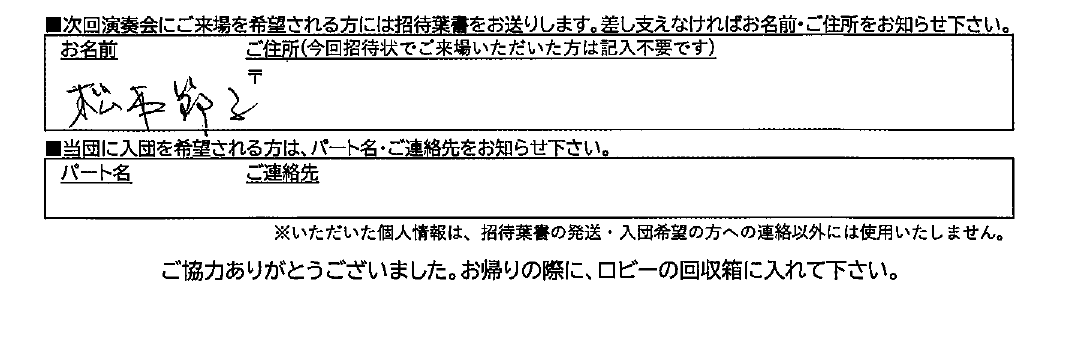 ■次回演奏会にご来場を希望される方には招待葉書をお送りします。差し支えなければお名前・ご住所をお知らせ下さい。
お名前 ご住所(今回招待状でご来場いただいた方は記入不要です)
〒
松本節子
■当団に入団を希望される方は、パート名・ご連絡先をお知らせ下さい。
パート名 ご連絡先
※いただいた個人情報は、招待葉書の発送・入団希望の方への連絡以外には使用いたしません。
ご協力ありがとうございました。お帰りの際に、ロビーの回収箱に入れて下さい。